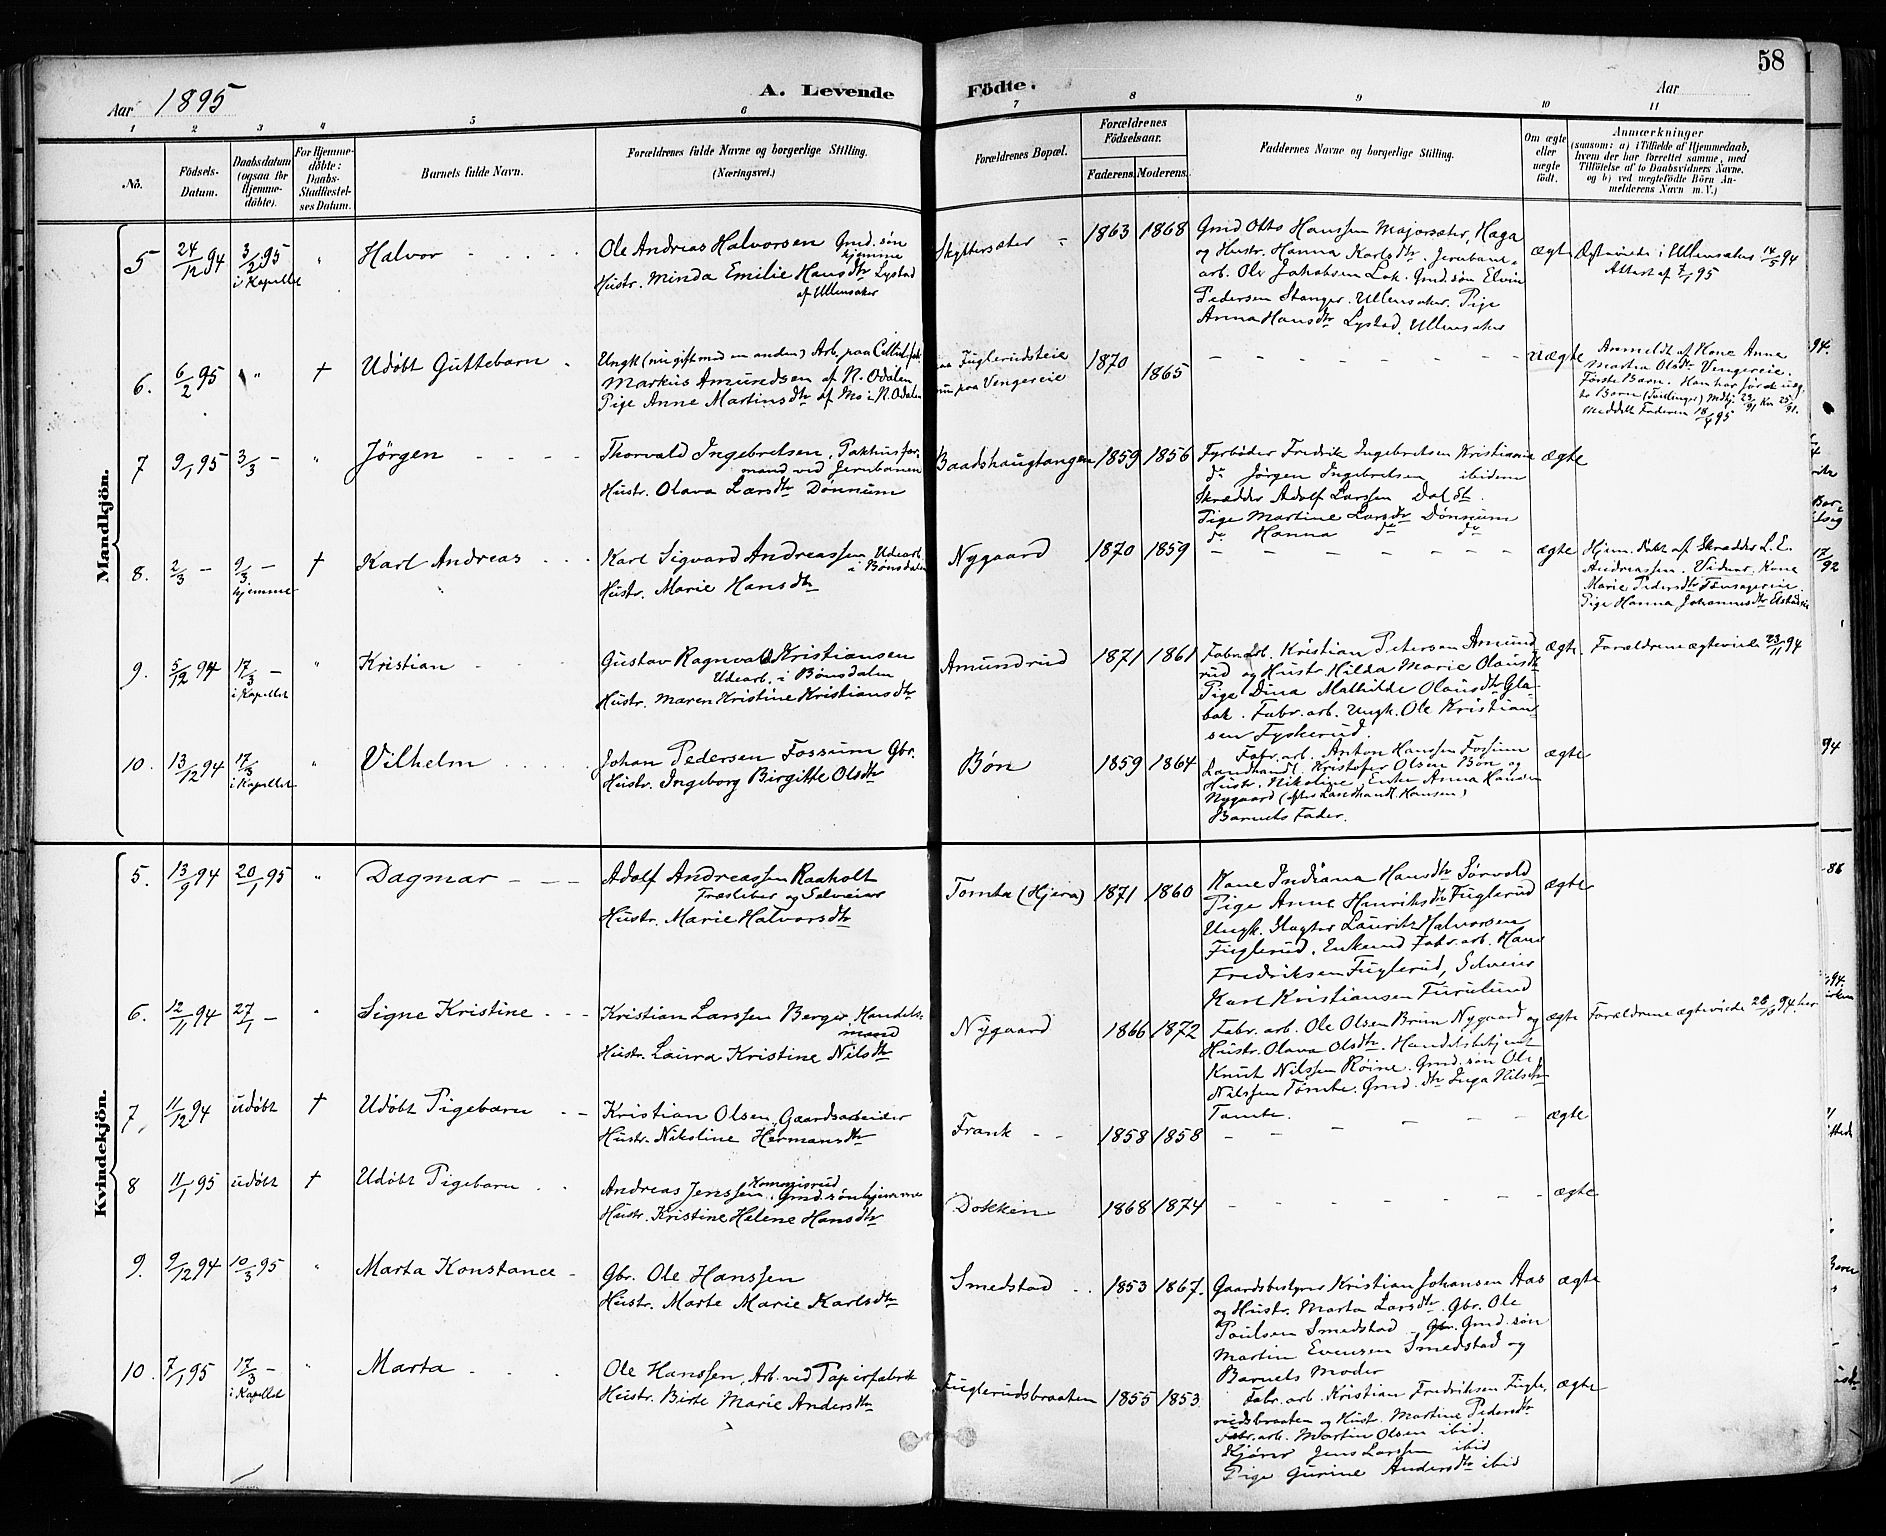 58
Aar 1895
A. Levende
Födte.
Aar
1
2
3
4
5
6
7
8
9
10
11
No.
Födsels-
Datum.
Daabsdatum
(ogsaa for
Hjemme-
döbte).
For Hjemme-
döbte:
Daabs-
Stadfæstel-
ses Datum.
Barnets fulde Navn.
Forældrenes fulde Navne og borgerlige Stilling.
(Næringsvei.)
Forældrenes Bopæl.
Forældrenes
Födselsaar.
Faderens.
Moderens.
Faddernes Navne og borgerlige Stilling.
Om ægte
eller
uægte
födt.
Anmærkninger
(saasom: a) i Tilfælde af Hjemmedaab,
hvem der har forrettet samme, med
Tilföielse af to Daabsvidners Navne.
og b) ved uægtefödte Börn An-
melderens Navn m. V.)
Mandkjön.
5
24/12 94
3/2 95
i Kapellet
"
Halvor
Ole Andreas Halvorsen Gmd. søn
hjemme
Hustr. Minda Emilie Hansdtr Lystad
af Ullensaker
Skyttersæter
1863
1868
Gmd Otto Hanssen Majorsæter, Haga
og Hustr. Hanna Karlsdtr. Jernbane-
arb. Ole Jakobsen Lok. Gmd. søn Elvin
Pedersen Stanger. Ullensaker. Pige
Anna Hansdtr Lystad, Ullensaker
ægt
Ægteviede i Ullensaker 14/5 94
Attest af 7/1 95
6.
6/2 95
"
†
Udøbt Guttebarn
Ungk (nu gift med en anden) Arb. paa Cellul. fabr
Markus Amundsen af N. Odalen
Pige Anne Martinsdtr af Mo i N. Odalen
Fuglerudsteie
nu paa Vengereie
1870
1865
uægte
Anmeldt af Kone Anne
Martia Olsdtr Vengereie.
Første Barn. Han har før de uæg
te Børn (Tvillinger) Mdkj. 23/91 Kv. 25/91.
Meddelt Faderen 18/4 95
7
9/1 95
3/3 -
"
Jørgen
Thorvald Ingebretsen, Pakhusfor-
mand ved Jernbanen
Hustr. Olava Larsdtr Dønnum
Baadshaugtangen
1859
1856
Fyrbøder Fredrik Ingebretsen Kristiania
do Jørgen Ingebretsen ibidem
Skrædder Adolf Larssen Dal st.
Pige Martine Larsdtr Dønnum
do Hanna do do
ægte
8.
2/3 -
9/3 -
hjemme
†
Karl Andreas
Karl Sigvard Andreassen Udearb.
i Bønsdalen
Hustr. Marie Hansdtr
Nygaard
1870
1859
ægte
Hjem. døbt af Skrædder L. E.
Andreassen. Vidner, Kone
Marie Pedersdtr
Pige Hanna Johannesdtr
9.
5/12 94
17/3 -
i Kapellet
"
Kristian
Gustav Ragnvald Kristiansen
Udearb. i Bønsdalen
Hustr. Maren Kristine Kristiansdtr
Amundrud
1871
1861
Fabr. arb. Kristian Petersen Amund
rud og Hustr. Hilda Marie Olausdtr
Pige Dina Mathilde Olausdtr Gla-
bak. Fabr. arb. Ungk. Ole Kristian-
sen Fyskerud.
ægt.
Forældrene ægteviede 23/11 94
10.
13/12 94
17/3
i Kapellet
"
Vilhelm
Johan Pedersen Fossum Gbr.
Hustr. Ingeborg Birgitte Olsdtr
Bøn
1859
1864
Fabr. arb. Anton Hanssen Fossum
Landhandl. Kristofer Olsen Bøn og
Hustr. Nikoline, Enke Anna Hansen
Nygaard (efter Landhandl. Hansen)
Barnets Fader.
ægte
Kvindekjön.
5.
13/9 94
20/1 95
"
Dagmar
Adolf Andreassen Raaholt
Træsliber og Selveier
Hustr. Marie Halvorsdtr
Tomta (Hjera)
1871
1860
Kone Indiana Hansdtr Sørvold
Pige Anne Henriksdtr Fuglerud
Ungk. Slagter Lauritz Halvorsen
Fuglerud. Enkemd Fabr. arb. Hans
Fredriksen Fuglerud, Selveier
Karl Kristiansen Furulund
ægte
6.
12/11 94
27/1 -
"
Signe Kristine
Kristian Larssen Berger, Handels-
mand
Hustr. Laura Kristine Nilsdtr
Nygaard
1866
1872
Fabr. arb. Ole Olsen Brun Nygaard og
Hustr. Olava Olsdtr. Handelsbetjent
Knut Nilssen Røine. Gmd. søn Ole
Nilssen Tømte. Gmd. dtr Inga Nilsdtr
Tømte.
ægte
Forældrene ægteviede 28/10 94 her
7.
11/12 94
udøbt
†
Udøbt Pigebarn
Kristian Olsen, Gaardsarbeider
Hustr. Nikoline Hermansdtr
Frank
1858
1858
ægte
8
11/1 95
udøbt
†
Udøbt Pigebarn
Andreas Jenssen, Gmd. søn hjemme
Hustr. Kristine Helene Hansdtr
Dokken
1868
1874
ægte
9.
9/12 94
10/3 95
"
Marta Konstance
Gbr. Ole Hanssen
Hustr. Marte Marie Karlsdtr
Smedstad
1853
1867.
Gaardsbestyrer Kristian Johansen Aas
og Hustr. Marta Larsdtr. Gbr. Ole
Poulsen Smedstad Gmd. søn
Martin Evensen Smedstad og
Barnets Moder
ægte
10.
7/1 95
17/3 -
i Kapellet
"
Marta
Ole Hanssen, Arb. ved Papirfabrik
Hustr. Birte Marie Andersdtr
Fuglerudsbraaten
1855
1853
Fabr. arb. Kristian Fredriksen Fugle,
rudsbraaten og Hustr. Martine Pedersdtr
Fabr. arb. Martin Olsen ibid.
Kjører Jens Larssen ibid
Pige Gurine Andersdtr ibid
ægte